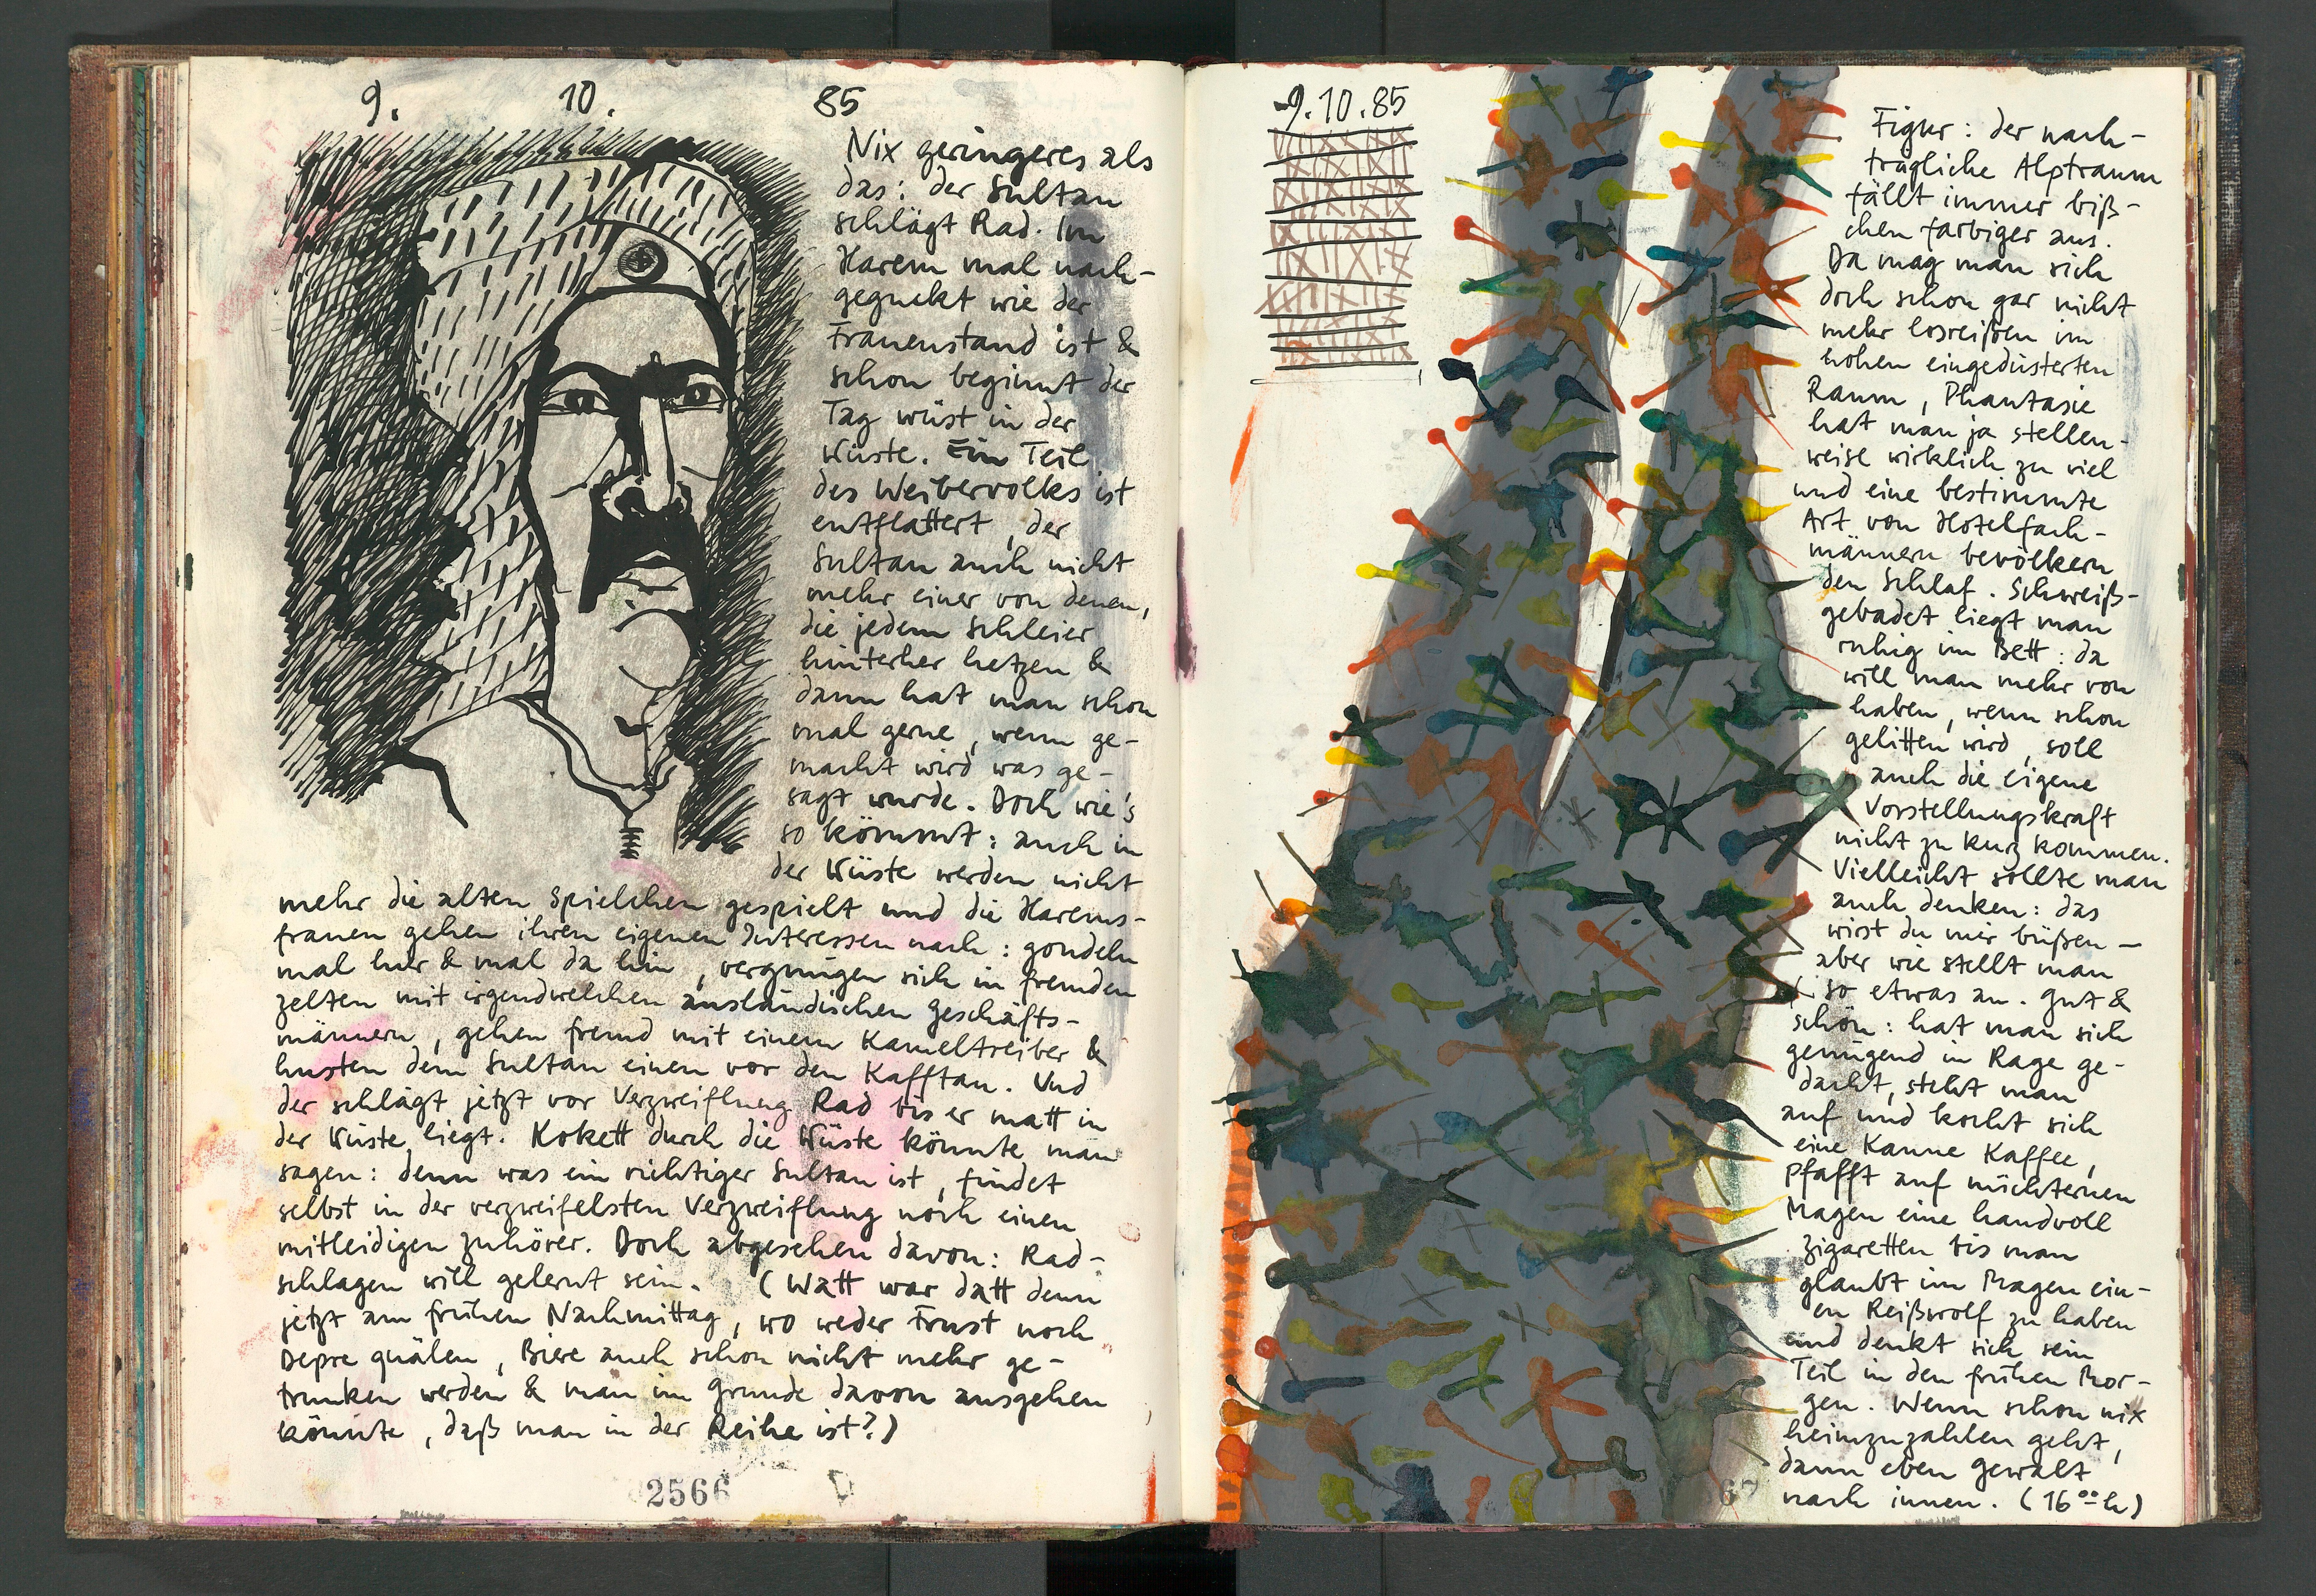 9. 10. 85
Nix geringeres als
das: der Sultan
schlägt Rad. Im
Harem mal nach-
geguckt wie der
Frauenstand ist &
schon beginnt der
Tag wüst in der
Wüste. Ein Teil
des Weibervolks ist
entflattert, der
Sultan auch nicht
mehr einer von denen,
die jedem Schleier
hinterher hetzen &
dann hat man schon
mal gerne, wenn ge-
macht wird was ge-
sagt wurde. Doch wie's
so kömmt: auch in
der Wüste werden nicht
mehr die alten Spielchen gespielt und die Harems-
frauen gehen ihren eigenen Interessen nach: gondeln
mal hier & mal da hin, vergnügen sich in fremden
Zelten mit irgendwelchen ausländischen Geschäfts-
männern, gehen fremd mit einem Kameltreiber &
husten dem Sultan einen vor den Kafftan. Und
der schlägt jetzt vor Verzweiflung Rad bis er matt in
der Wüste liegt. Kokett durch die Wüste könnte man
sagen: denn was ein richtiger Sultan ist, findet
selbst in der verzweifelsten Verzweiflung noch einen
mitleidigen Zuhörer. Doch abgesehen davon: Rad-
schlagen will gelernt sein. (Watt war datt denn
jetzt am frühen Nachmittag, wo weder Frust noch
Depre quälen, Biere auch schon nicht mehr ge-
trunken werden & man im Grunde davon ausgehen
könnte, daß man in der Reihe ist?)
2566
9.10.85
Figur: der nach-
trägliche Alptraum
fällt immer biß-
chen farbiger aus.
Da mag man sich
doch schon gar nicht
mehr losreißen im
hohen eingedüsterten
Raum, Phantasie
hat man ja stellen-
weise wirklich zu viel
und eine bestimmte
Art von Hotelfach-
männern bevölkern
den Schlaf. Schweiß-
gebadet liegt man
ruhig im Bett: da
will man mehr von
haben, wenn schon
gelitten wird, soll
auch die eigene
Vorstellungskraft
nicht zu kurz kommen.
Vielleicht sollte man
auch denken: das
wirst du mir büßen —
aber wie stellt man
so etwas an. Gut &
schön: hat man sich
genügend in Rage ge-
dacht, steht man
auf und kocht sich
eine Kanne Kaffee,
pfafft auf nüchternen
Magen eine handvoll
Zigaretten bis man
glaubt im Magen ein-
en Reißwolf zu haben
und denkt sich sein
Teil in den frühen Mor-
gen. Wenn schon nix
heimzuzahlen geht,
dann eben Gewalt
nach innen. (16⁰⁰ h)
67